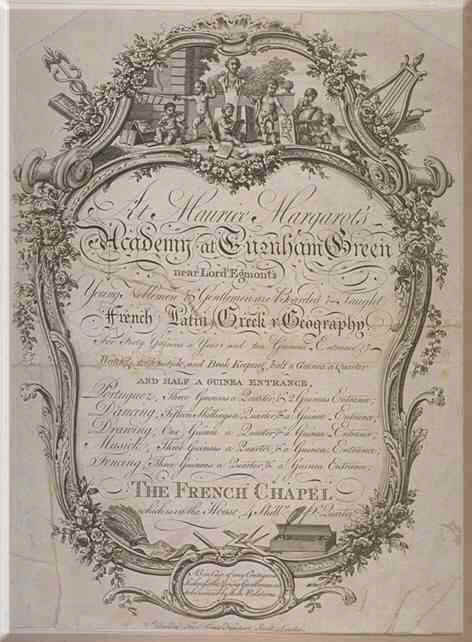 At Maurice Margarot's
Academy at Turnham Green
near Lord Egmont's
Young Noblemen & Gentlemen are Boarded & Taught
French Latin Greek & Geography
For Forty Guineas a Year and two Guineas Entrance, &
Writing, Arithmetick, and Book Keeping, half a Guinea a Quarter
AND HALF A GUINEA ENTRANCE,
Portugueze, Three Guineas a Quarter, & 2 Guineas Entrance,
Dancing, Fifteen Shillings a Quarter, & a Guinea Entrance,
Drawing, One Guinea a Quarter, & a Guinea Entrance,
Musick, Three Guineas a Quarter, & a Guinea Entrance,
Fencing, Three Guineas a Quarter, & a Guinea Entrance,
THE FRENCH CHAPEL
which is in the House, 4 Shill.gs P.r Quarter
In Case of any Contagious